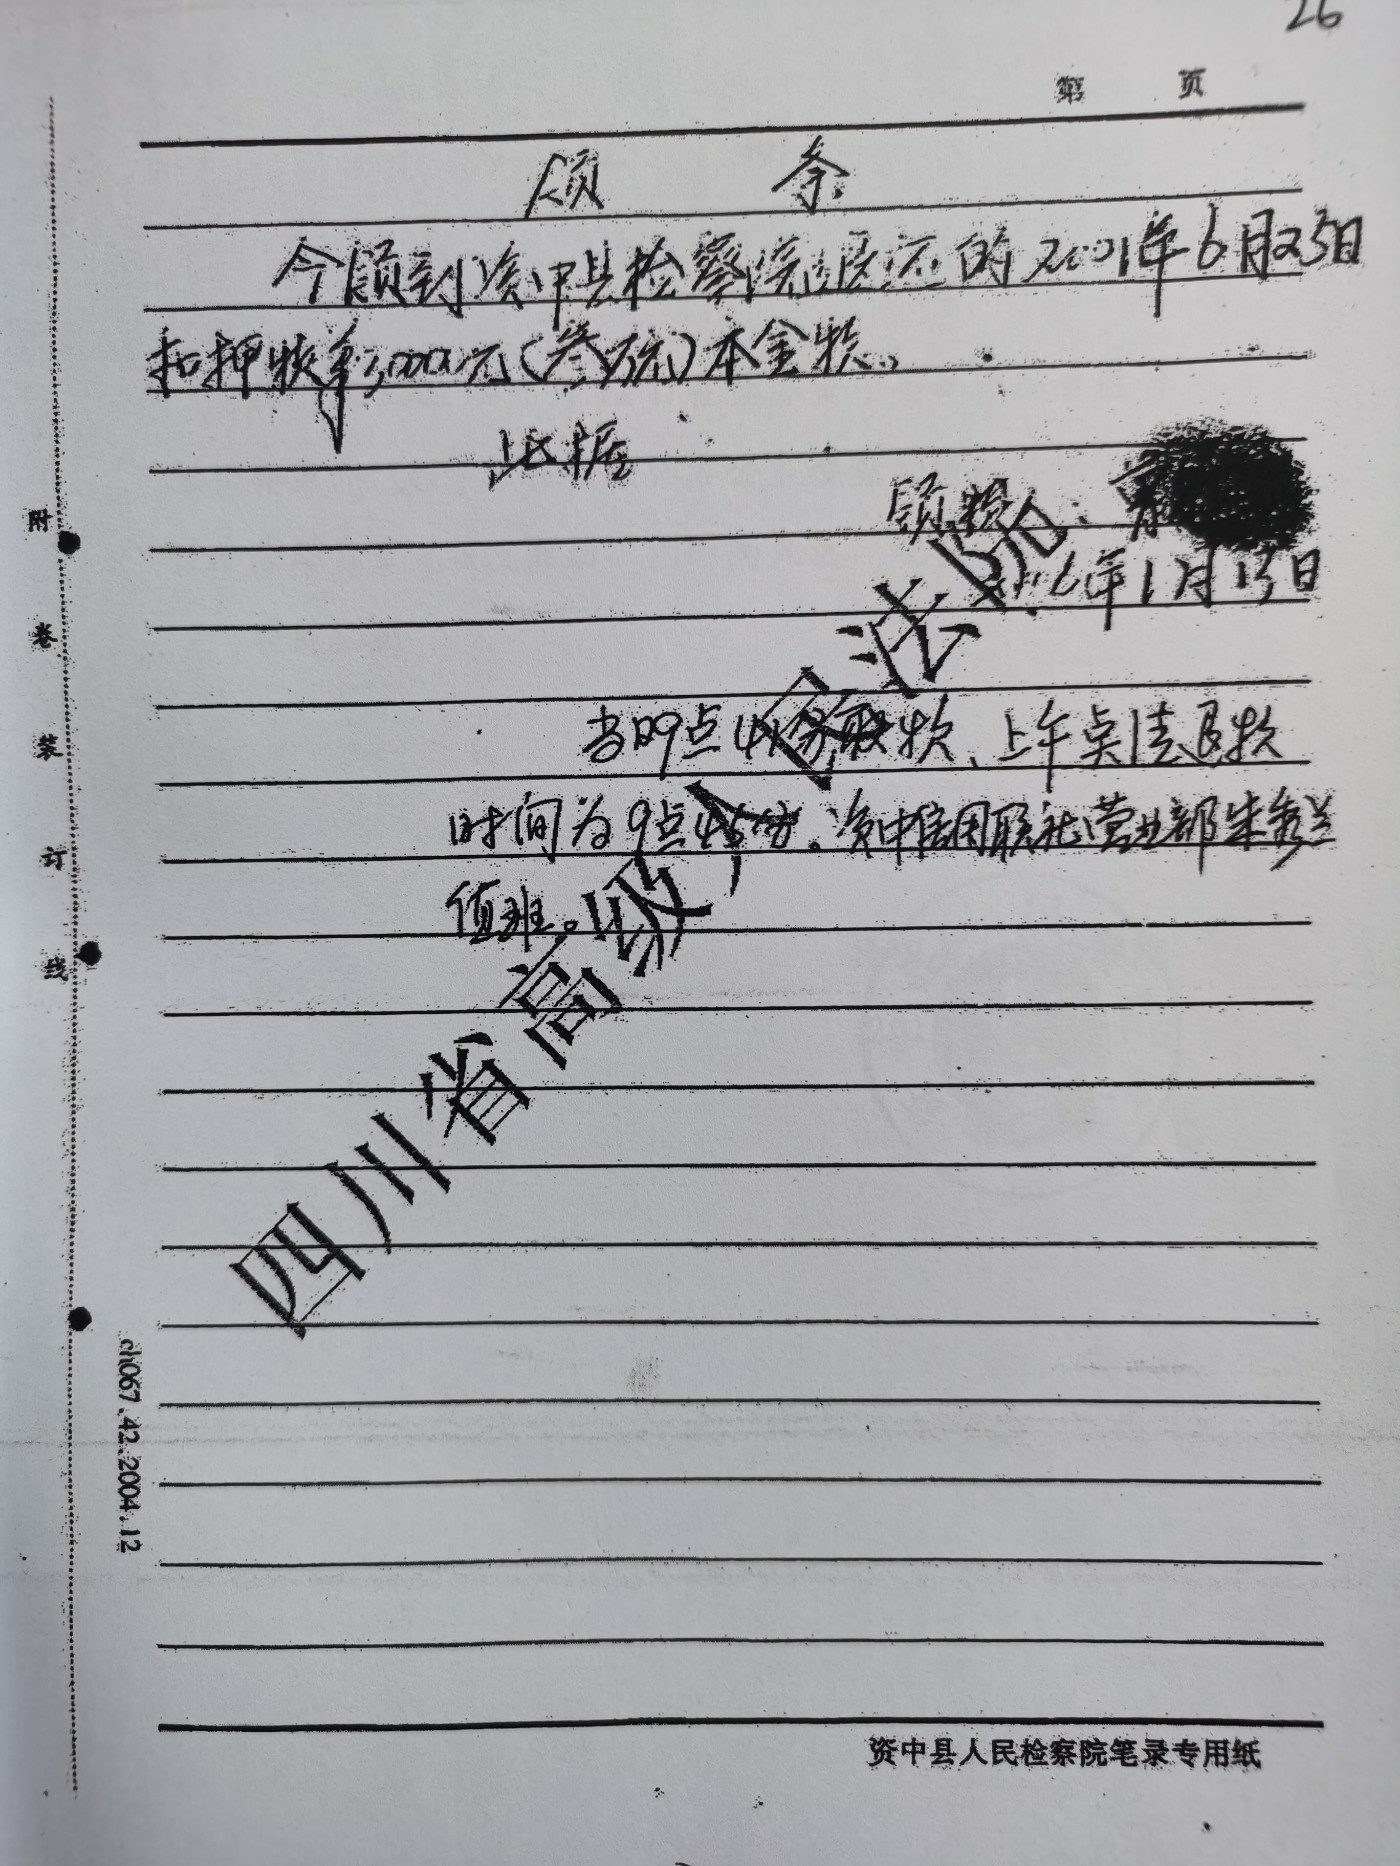 26
第 页
领 条
今领到资中县检察院退还的2001年6月25日
扣押现金30000元(叁万元)本金款。
此据
领款
年1月13日
当日9点41分取款、上午点清退款
时间为9点45分。资中信用联社营业部朱秀兰
值班。
四川省高级人民法院
附卷装订线
ch067.42.2004.12
资中县人民检察院笔录专用纸